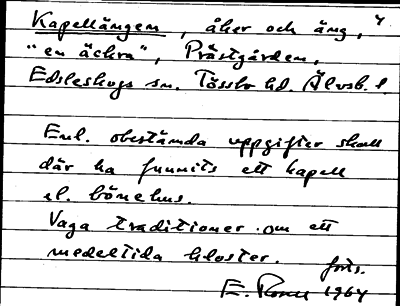 Kapellängen, åker och äng, 4
"en äckra", Prästgården,
Edsleskogs sn. Tössbo hd. Älvsb. l.
Enl. obestämda uppgifter skall
där ha funnits ett kapell
el. bönehus.
Vaga traditioner om ett
medeltida kloster. forts.
E. 1964